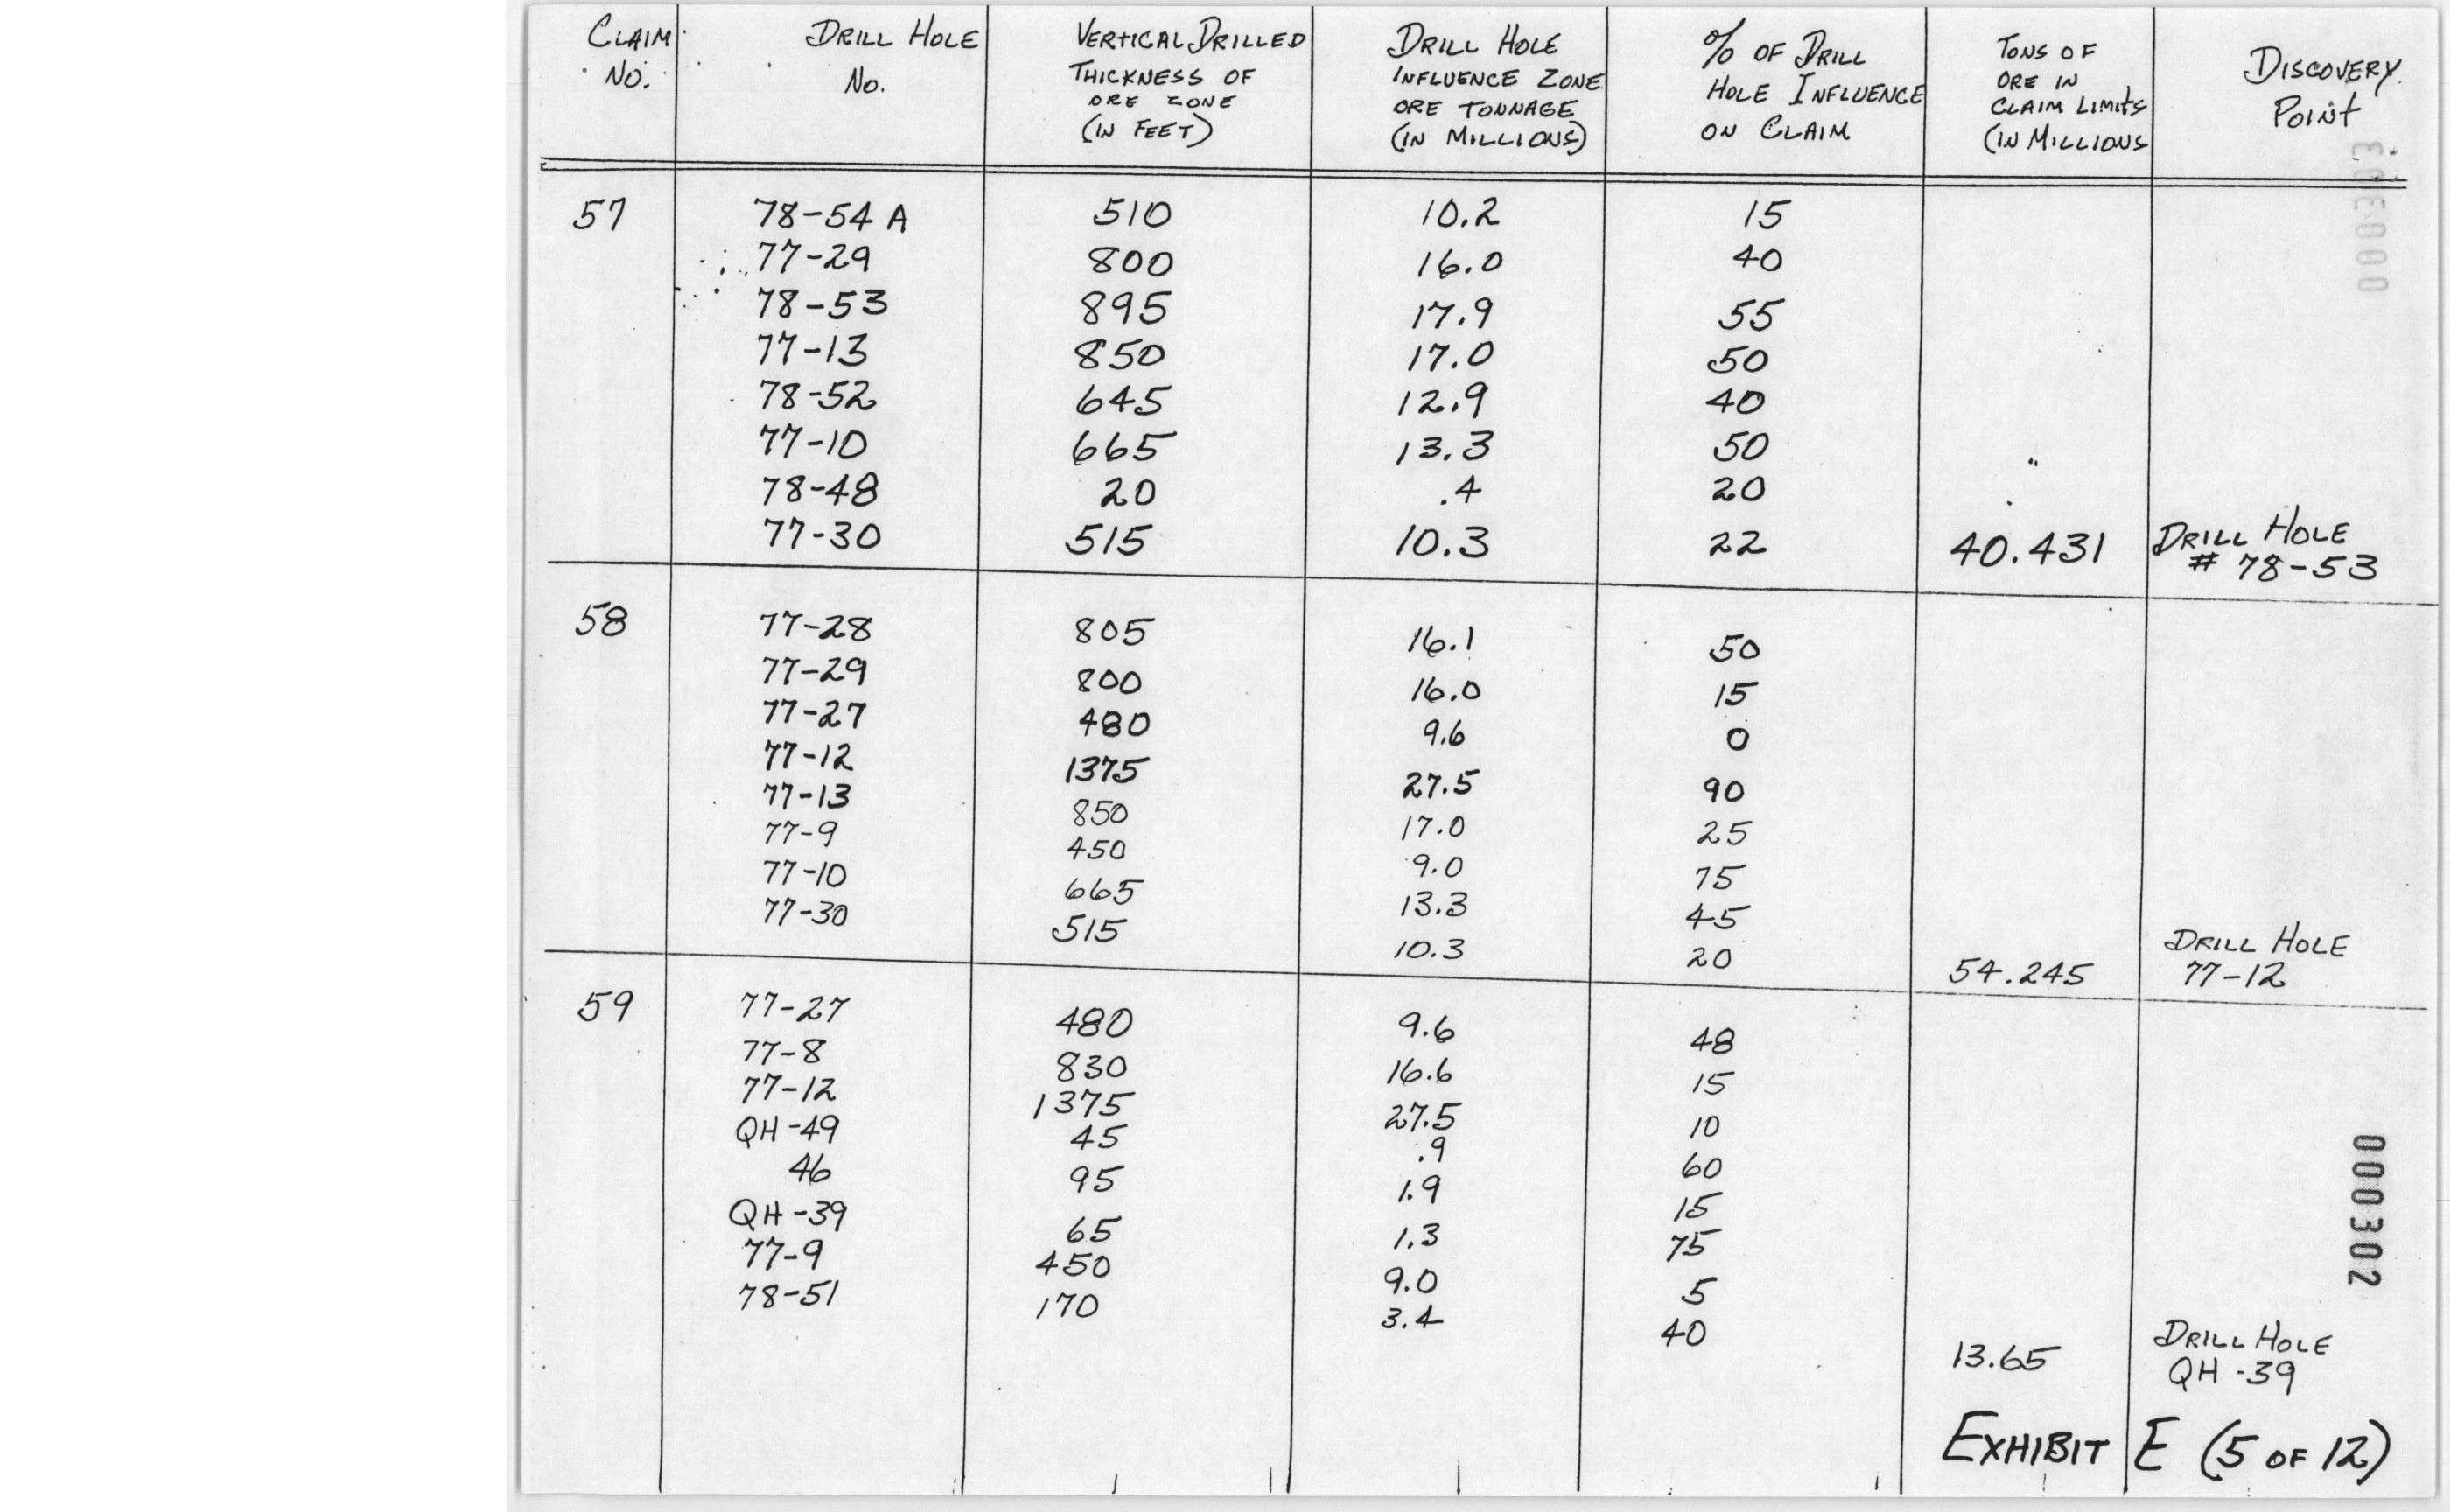 CLAIM No. DRILL HOLE No. VERTICAL DRILLED THICKNESS OF ORE ZONE (IN FEET) DRILL HOLE INFLUENCE ZONE ORE TONNAGE (IN MILLIONS) % OF DRILL HOLE INFLUENCE ON CLAIM TONS OF ORE IN CLAIM LIMITS (IN MILLIONS DISCOVERY POINT
57 78-54 A 510 10.2 15
77-29 800 16.0 40
78-53 895 17.9 55
77-13 850 17.0 50
78-52 645 12.9 40
77-10 665 13.3 50
78-48 20 .4 20
77-30 515 10.3 22 40.431 DRILL HOLE # 78-53
58 77-28 805 16.1 50
77-29 800 16.0 15
77-27 480 9.6 0
77-12 1375 27.5 90
77-13 850 17.0 25
77-9 450 9.0 75
77-10 665 13.3 45
77-30 515 10.3 20 54.245 DRILL HOLE 77-12
59 77-27 480 9.6 48
77-8 830 16.6 15
77-12 1375 27.5 10
QH-49 45 .9 60
46 95 1.9 15
QH-39 65 1.3 75
77-9 450 9.0 5
78-51 170 3.4 40
13.65 DRILL HOLE QH-39
EXHIBIT E (5 OF 12)
000303
000302